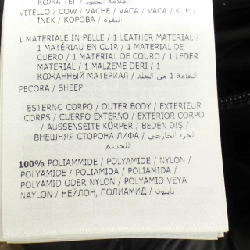 VITELLO / COW / VACHE / VACA / VACA /
INEK / КОРОВА /
1 MATERIALE IN PELLE / 1 LEATHER MATERIAL /
1 MATÉRIAU EN CUIR / 1 MATERIAL DE
CUERO / 1 MATERIAL DE COURO / 1 LEDER
MATERIAL / 1 MALZEME DERI / 1
КОЖАННЫЙ МАТЕРИАЛ /
PECORA / SHEEP
ESTERNO CORPO / OUTER BODY / EXTERIEUR
CORPS / CUERPO EXTERNO / EXTERIOR CORPO
/ AUSSENSEITE KÖRPER / BEDEN DIŞ /
ВНЕШНЯЯ СТОРОНА ЛИФА /
100% POLIAMMIDE / POLYAMIDE / NYLON /
POLYAMIDE / POLIAMIDA / POLIAMIDA /
POLYAMID ODER NYLON / POLYAMID VEYA
NAYLON / НЕЙЛОН, ПОЛИАМИД /